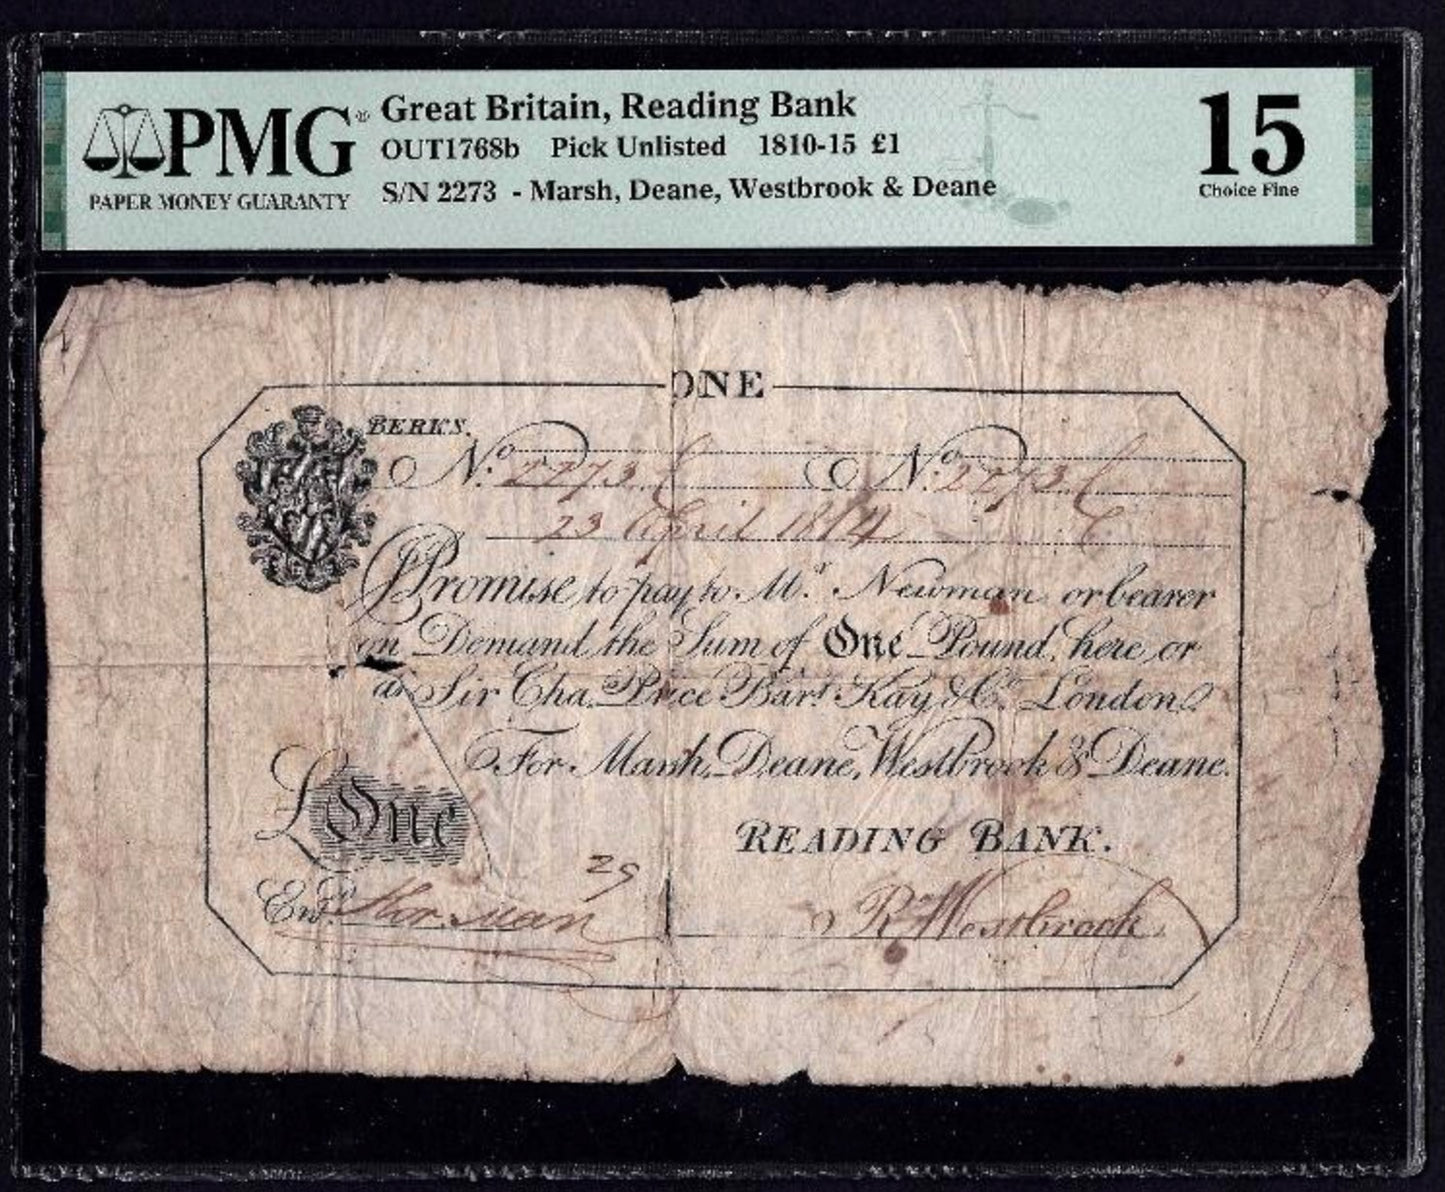 PMG
PAPER MONEY GUARANTY
Great Britain, Reading Bank
OUT1768b Pick Unlisted 1810-15 £1
S/N 2273 - Marsh, Deane, Westbrook & Deane
15
Choice Fine
ONE
BERKS.
No. 2273 No. 2273
23 April 1814
I Promise to pay to Mr. Newman or bearer
on Demand the Sum of One Pound, here or
at Sir Cha. Price Bart. Kay & Co. London
For Marsh, Deane, Westbrook & Deane.
£One
READING BANK.
29
Entd. R Westbrook